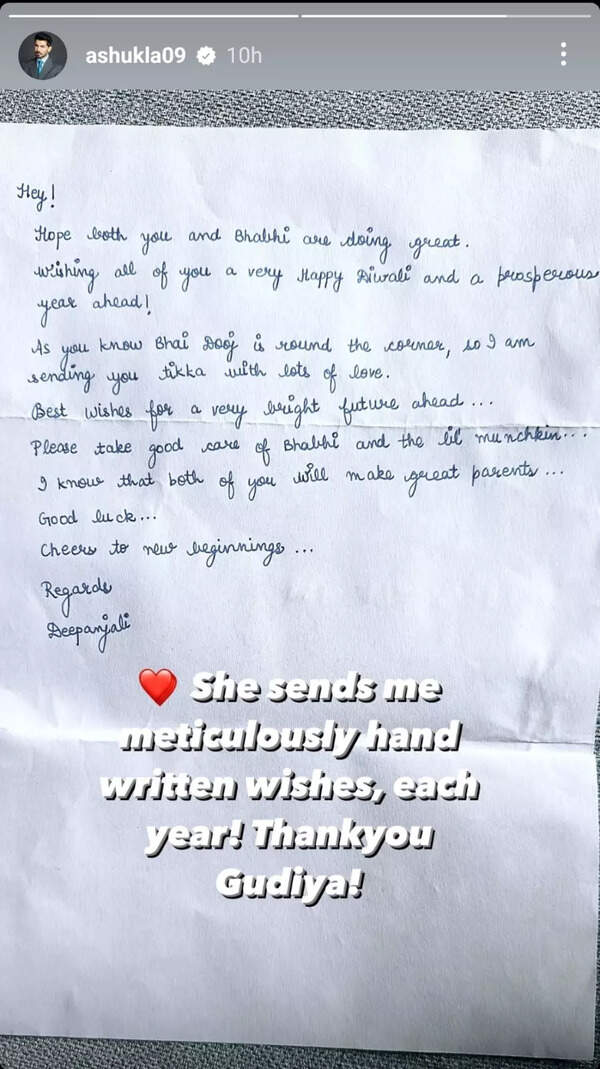 ashukla09 10h
Hey!
Hope both you and Bhabhi are doing great.
Wishing all of you a very Happy Diwali and a prosperous
year ahead!
As you know Bhai Dooj is round the corner, so I am
sending you tikka with lots of love.
Best wishes for a very bright future ahead...
Please take good care of Bhabhi and the lil munchkin...
I know that both of you will make great parents...
Good luck...
Cheers to new beginnings...
Regards
Deepanjali
❤️ She sends me
meticulously hand
written wishes, each
year! Thankyou
Gudiya!